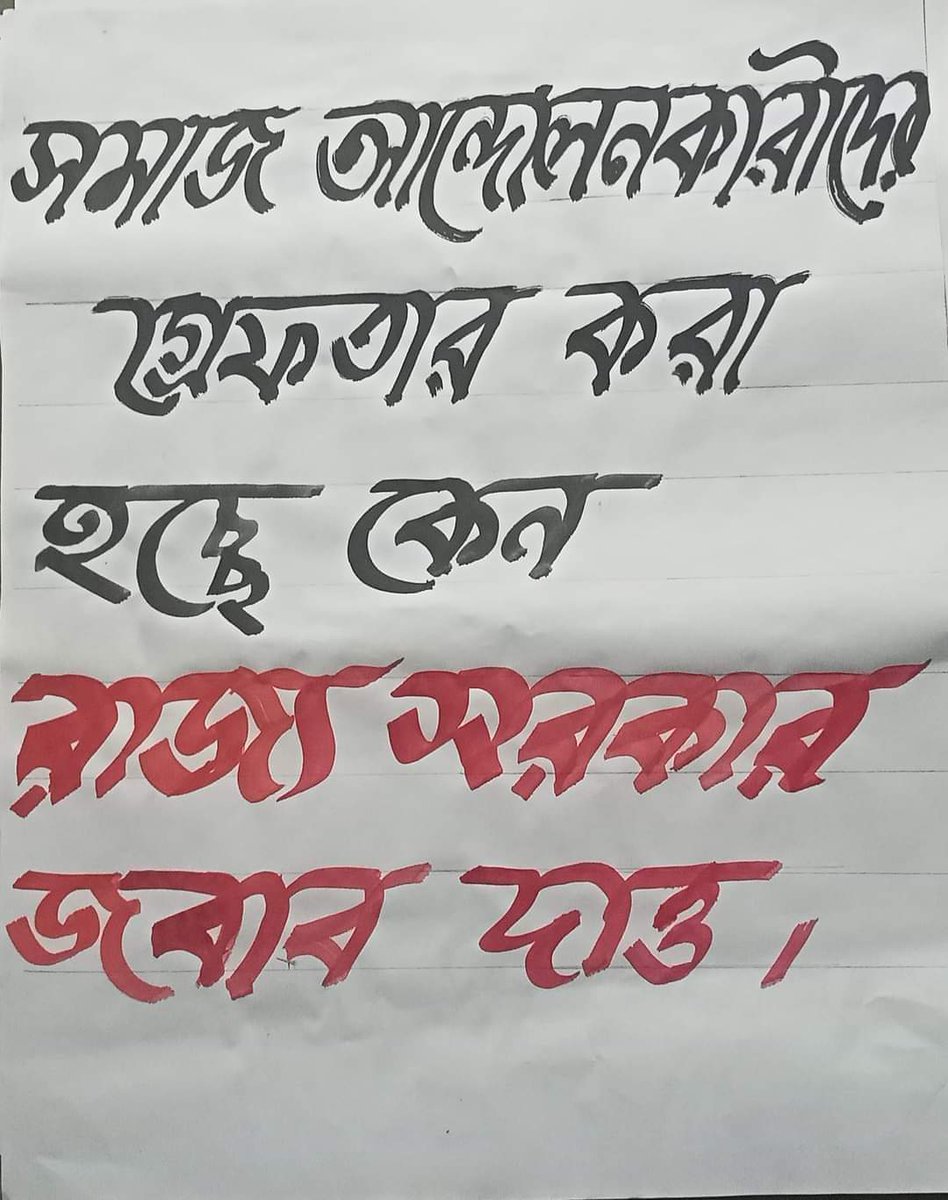 সমাজ আন্দোলনকারীদের
গ্রেফতার করা
হচ্ছে কেন
রাজ্য সরকার
জবাব দাও।